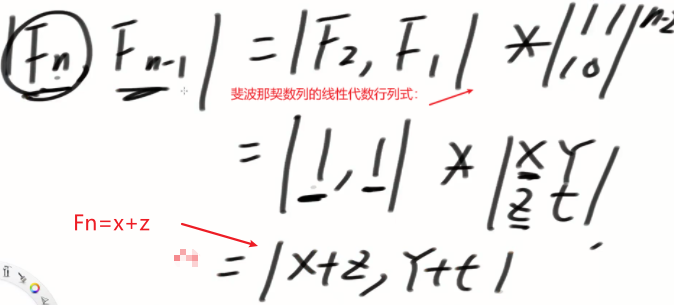 |Fn, Fn-1| = |F2, F1| * |1 1 / 1 0|^n-2
斐波那契数列的线性代数行列式:
= |1, 1| * |x Y / z t|
Fn=x+z
= |x+z, Y+t|